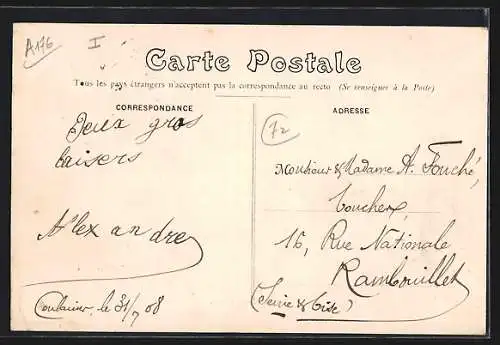 A176
I
Carte Postale
Tous les pays étrangers n'acceptent pas la correspondance au recto (Se renseigner à la Poste)
CORRESPONDANCE
Deux gros
baisers
Alexandre
le 31/7 08
ADRESSE
72
Monsieur & Madame A. Fouché,
boucher,
16, Rue Nationale
Rambouillet
(Seine & Oise)